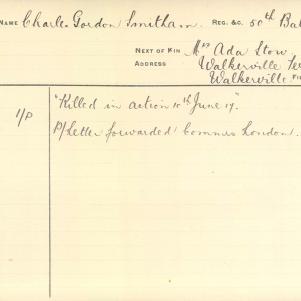 NAME Charles Gordon Smitham. REG. &C. 50th Bat
NEXT OF KIN Mrs Ada Stow.
ADDRESS Walkerville Ter
Walkerville
"Killed in action 10th June 17."
1/P P/Letter forwarded Commns London.